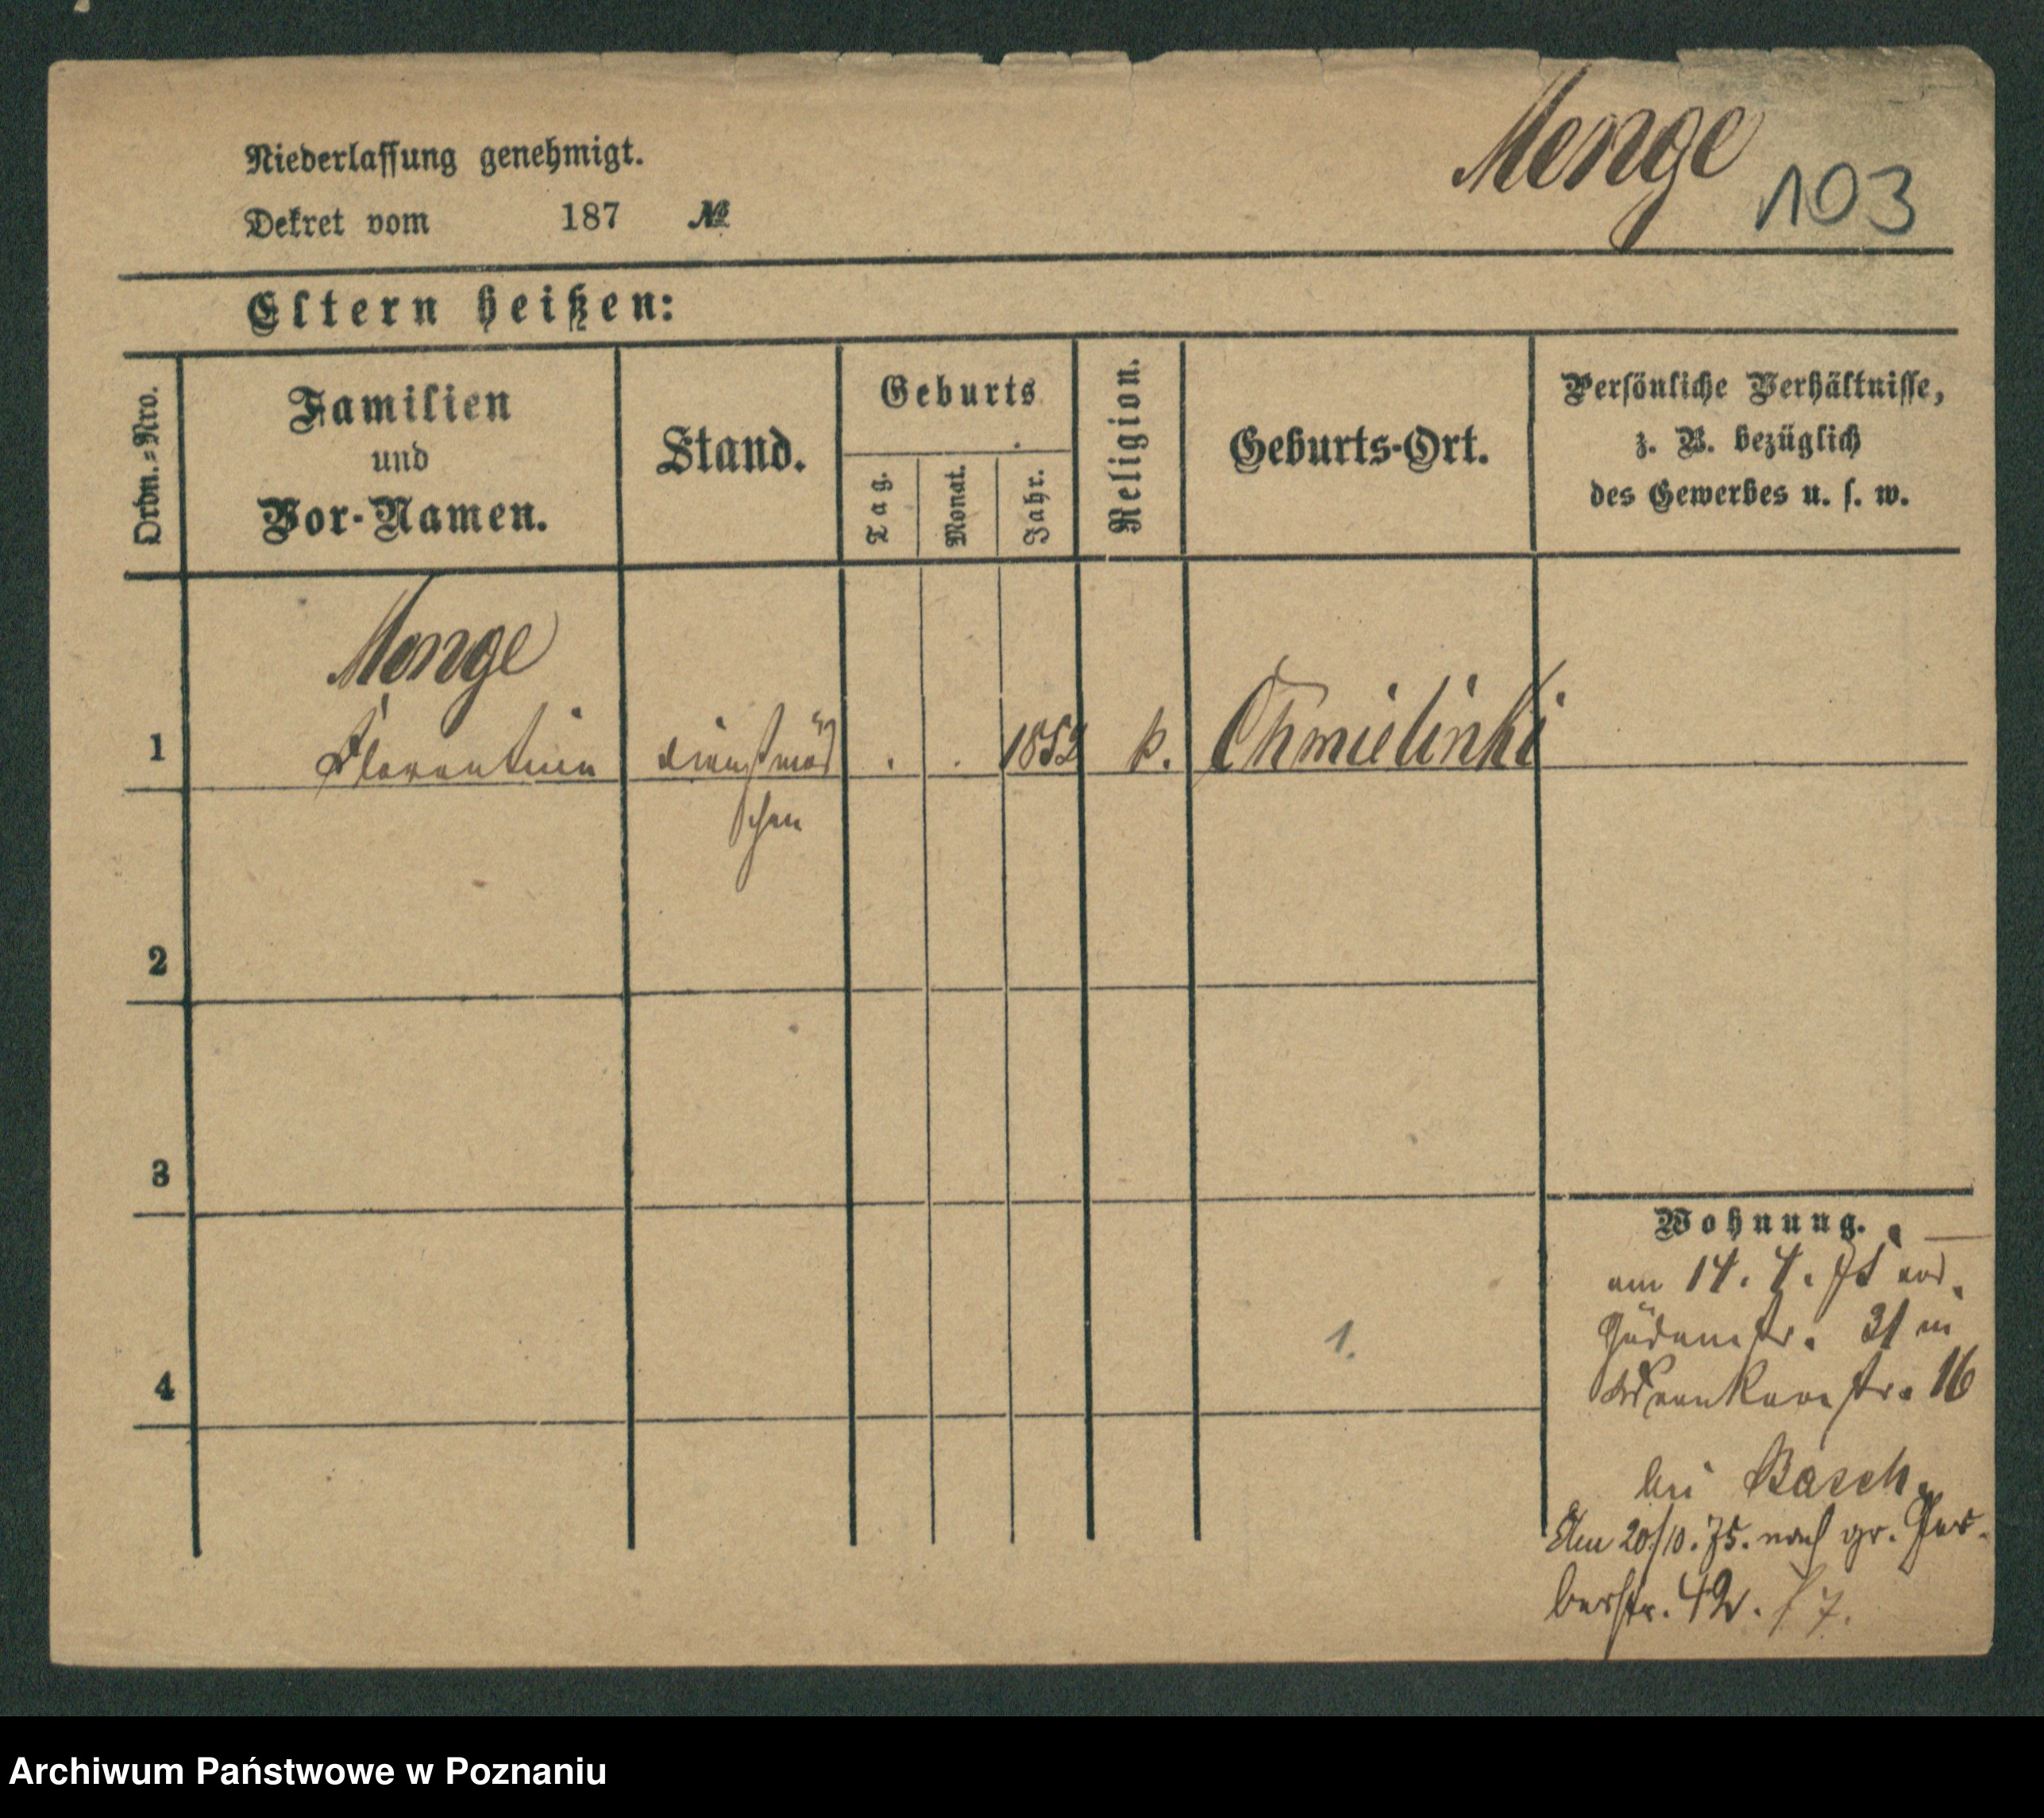 Menge
103
Niederlassung genehmigt.
Dekret vom 187 №
Eltern heißen:
Ordn.-Nro.
Familien
und
Vor-Namen.
Stand.
Geburts
Tag.
Monat.
Jahr.
Religion.
Geburts-Ort.
Persönliche Verhältnisse,
z. B. bezüglich
des Gewerbes u. s. w.
Menge
1 Florentine dienstmäd . . 1852 k. Chmielinki
chen
2
3
Wohnung.
am 14. 4. 75 von
str. 31 in
str. 16
4
1.
bei Basch.
Am 20/10. 75. nach gr. Ger-
berstr. 42. / 7.
Archiwum Państwowe w Poznaniu